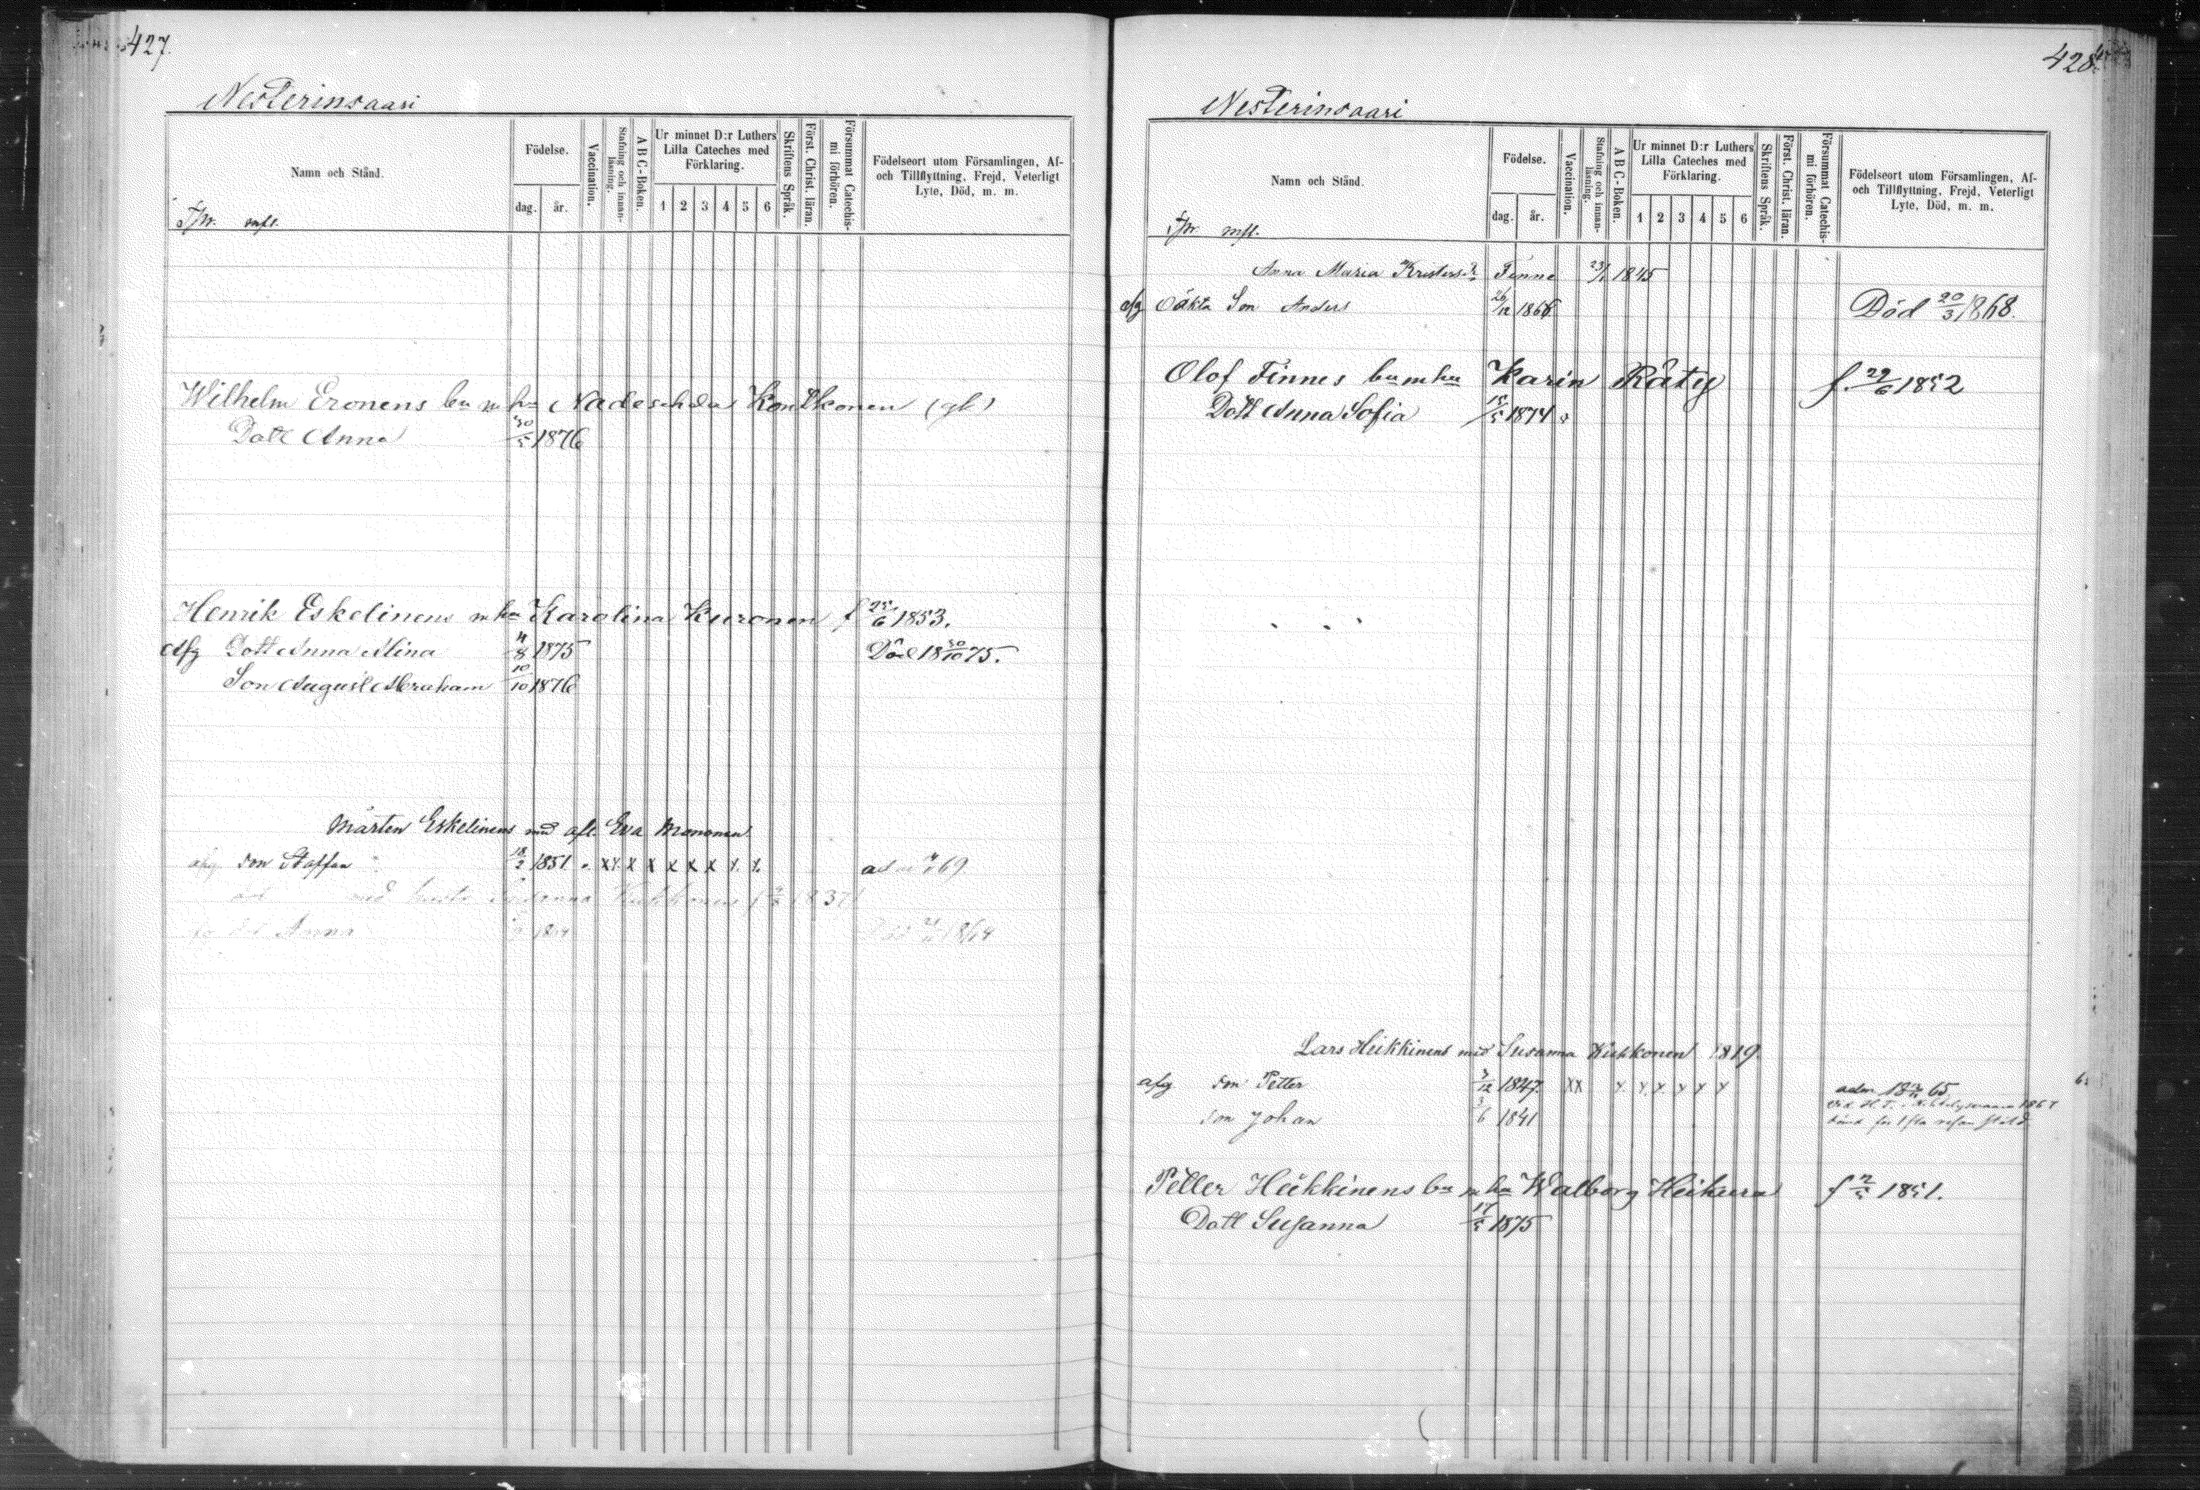 427.
Nesterinsaari
Namn och Stånd.
Födelse.
dag. år.
Vaccination.
Stafning och innan-läsning.
A B C-Boken.
Ur minnet D:r Luthers Lilla Cateches med Förklaring.
1 2 3 4 5 6
Skriftens Språk.
Först. Christ. läran.
Försummat Catechis-mi förhören.
Födelseort utom Församlingen, Af- och Tillflyttning, Frejd, Veterligt Lyte, Död, m. m.
Wilhelm Eronens bn m hu Nadeschda Kontkonen (gl)
Dott Anna 30/5 1876
Henrik Eskelinens m hu Karolina Kuronen f 25/6 1853.
afg Dott Anna Alina 1875 Död 18 30/10 75.
Son August Abraham 10/10 1876
Mårten Eskelinens med afl. Eva Mononen
afg son Staffan 18/2 1851 x x x x x x x x x 69.
med hustr Susanna Kukkonen 37
Anna 1864
428.
Nesterinsaari
Namn och Stånd.
Födelse.
dag. år.
Vaccination.
Stafning och innan-läsning.
A B C-Boken.
Ur minnet D:r Luthers Lilla Cateches med Förklaring.
1 2 3 4 5 6
Skriftens Språk.
Först. Christ. läran.
Försummat Catechis-mi förhören.
Födelseort utom Församlingen, Af- och Tillflyttning, Frejd, Veterligt Lyte, Död, m. m.
Anna Maria Kristersdr Finne 1845
afg Oäkta Son Anders 26/12 1866 Död 20/3 1868.
Olof Finnes bn m hu Karin Räty f. 29/6 1852
Dott Anna Sofia 15/5 1874
Lars Heikkinens med Susanna Kukkonen 1819.
afg son Petter 3/12 1847. x x x x x x x x adm 18 65
son Johan 3/6 1841
Petter Heikkinens bn m hu Walborg Heikura f 2/5 1851.
Dott Susanna 17/5 1875